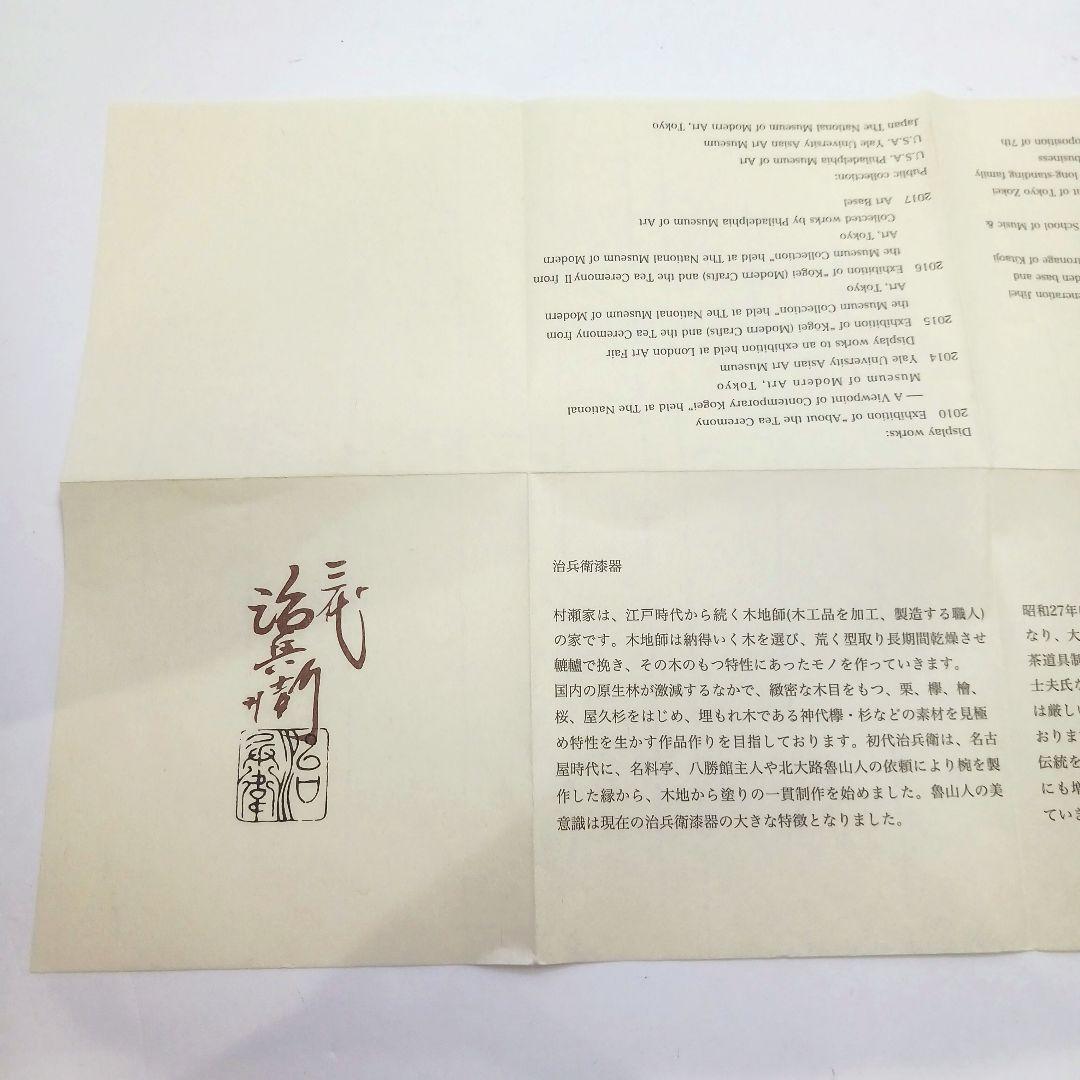 Display works:
2010 Exhibition of "About the Tea Ceremony
— A Viewpoint of Contemporary Kogei" held at The National
Museum of Modern Art, Tokyo
2014 Yale University Asian Art Museum
Display works to an exhibition held at London Art Fair
2015 Exhibition of "Kogei (Modern Crafts) and the Tea Ceremony from
the Museum Collection" held at The National Museum of Modern
Art, Tokyo
2016 Exhibition of "Kogei (Modern Crafts) and the Tea Ceremony II from
the Museum Collection" held at The National Museum of Modern
Art, Tokyo
Collected works by Philadelphia Museum of Art
2017 Art Basel
Public collection:
U.S.A. Philadelphia Museum of Art
U.S.A. Yale University Asian Art Museum
Japan The National Museum of Modern Art, Tokyo
eneration Jihei
den base and
tronage of Kitaoji
School of Music &
t of Tokyo Zokei
long-standing family
business
oposition of 7th
三代
治兵衛
治兵衛漆器
村瀬家は、江戸時代から続く木地師(木工品を加工、製造する職人)
の家です。木地師は納得いく木を選び、荒く型取り長期間乾燥させ
轆轤で挽き、その木のもつ特性にあったモノを作っていきます。
国内の原生林が激減するなかで、緻密な木目をもつ、栗、欅、檜、
桜、屋久杉をはじめ、埋もれ木である神代欅・杉などの素材を見極
め特性を生かす作品作りを目指しております。初代治兵衛は、名古
屋時代に、名料亭、八勝館主人や北大路魯山人の依頼により椀を製
作した縁から、木地から塗りの一貫制作を始めました。魯山人の美
意識は現在の治兵衛漆器の大きな特徴となりました。
昭和27年
なり、大
茶道具制
士夫氏な
は厳しい
おりま
伝統を
にも増
ていき